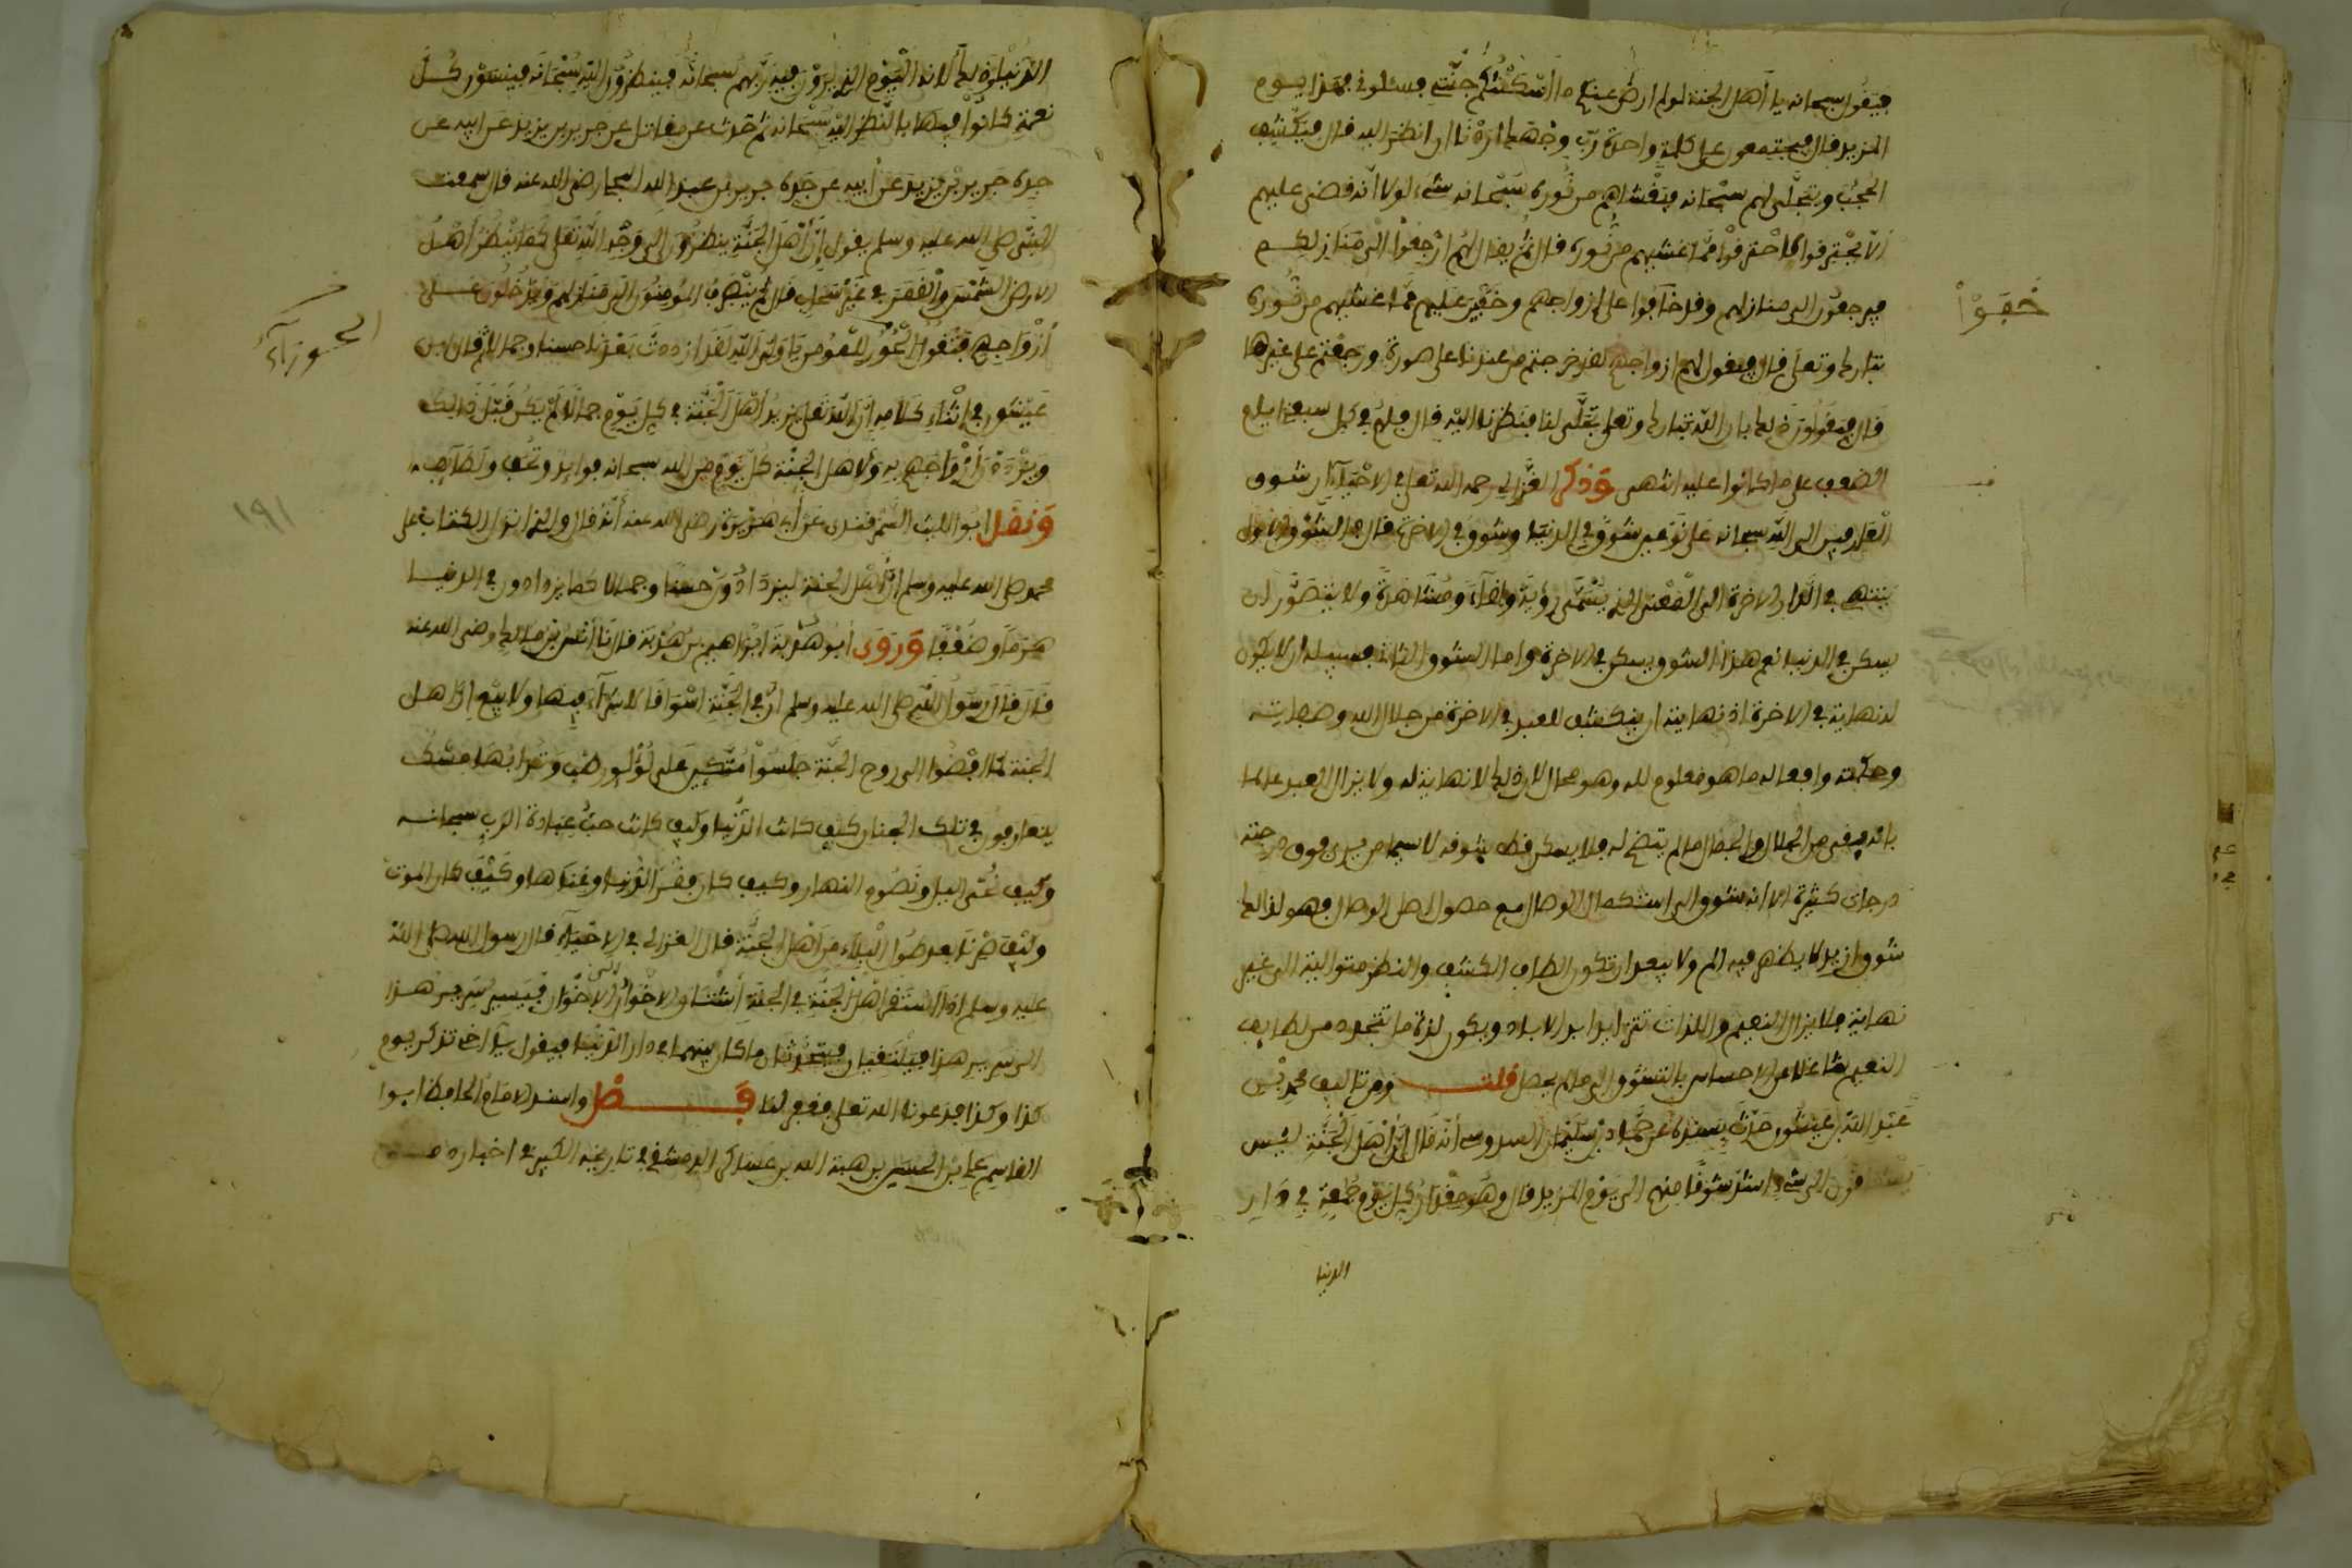 فيقول سبحانه يا أهل الجنة لو لم ارض عنكم ما أسكنتكم جنتي فسئلوني فهذا يوم
المزيد قال فيجتمعون على كلمة واحدة رب وجهك ارنا ان انظر اليه قال فيكشف
الحجب ويتجلى لهم سبحانه فيغشاهم من نوره سبحانه شيء لولا أنه قضى عليهم
ألا يحترقوا لاحترقوا مما غشيهم من نوره قال ثم يقال لهم ارجعوا الى منازلكم
فيرجعون الى منازلهم وقد خابوا على ازواجهم وخفين عليهم مما غشيهم من نوره
تبارك وتعلى قال فيقول لهم ازواجهم لقد خرجتم من عندنا على صورة ورجعتم على غيرها
قال فيقولون ذلك بان الله تبارك وتعلى تجلى لنا فنظرنا اليه قال فلهم في كل سبعة ايام
الضعف على ما كانوا عليه انتهى وذكر الغزالي رحمه الله تعلى في الاحياء ان شوق
العارفين الى الله سبحانه على نوعين شوق في الدنيا وشوق في الاخرة قال فالشوق الاول
ينتهي في الدار الاخرة الى المعنى الذي يسمى رؤية ولقاء ومشاهدة ولا يتصور ان
يسكن في الدنيا نعم هذا الشوق يسكن في الاخرة واما الشوق الثاني فسبيله ان لا يكون
له نهاية في الاخرة اذ نهايته ان ينكشف للعبد في الاخرة من جلال الله وصفاته
وحكمته وافعاله ما هو معلوم لله وهو محال لان ذلك لا نهاية له ولا يزال العبد عالما
بانه بقي من الجلال والجمال ما لم يتضح له فلا يسكن قط شوقه لا سيما من يرى فوق درجته
درجات كثيرة الا انه شوق الى استكمال الوصال مع حصول اصل الوصال فهو لذلك
شوق لذيذ لا يظهر فيه الم ولا يبعد ان تكون الطاف الكشف والنظر متوالية الى غير
نهاية فلا يزال النعيم واللذات تتزايد ابد الاباد ويكون لذة ما يتجدد من لطايف
النعيم شاغلا عن الاحساس بالتشوق الى ما لم يحصل قلت ومن تاليف محمد بن
عبد الله بن عيشون حدث بسنده عن حماد بن سليمان السدوسي أنه قال إن أهل الجنة ليس
يشتاقون الى شيء اشد شوقا منهم الى يوم المزيد قال وهو مقدار كل يوم جمعة في دار
الدنيا
خفوا
الدنيا وذلك لانه اليوم الذي يرون فيه ربهم سبحانه فينظرون اليه سبحانه فينسون كل
نعمة كانوا فيها بالنظر اليه سبحانه ثم حدث عن مقاتل عن جرير بن يزيد عن ابيه عن
جده جرير بن يزيد عن أبيه عن جده جرير بن عبد الله البجلي رضي الله عنه قال سمعت
النبي صلى الله عليه وسلم يقول إن أهل الجنة ينظرون الى وجه الله تعلى كما ينظر أهل
الارض الشمس والقمر في غير سحاب قال ثم ينصرف المؤمنون الى منازلهم ويدخلون على
أزواجهم فتقول الحور للمؤمن يا ولي الله لقد ازددت بعدنا حسنا وجمالا ثم قال ابن
عيشون في اثناء كلامه ان الله تعلى يزيد أهل الجنة في كل يوم جمالا لم يكن قبل ذلك
ويزدد أزواجهم به ولأهل الجنة كل يوم من الله سبحانه فوايد وتحف ولطايف
ونقل ابو الليث السمرقندي عن أبي هريرة رضي الله عنه أنه قال والذي انزل الكتاب على
محمد صلى الله عليه وسلم ان أهل الجنة ليزدادون حسنا وجمالا كما يزدادون في الدنيا
هرما وضعفا وروى أبو هدبة ابراهيم بن هدبة قال نا أنس بن مالك رضي الله عنه
قال قال رسول الله صلى الله عليه وسلم ان في الجنة اسواقا لا شراء فيها ولا بيع ان أهل
الجنة لما افضوا الى روح الجنة جلسوا متكين على لؤلؤ رطب وترابها مسك
يتعارفون في تلك الجنان كيف كانت الدنيا وكيف كانت عبادة الرب سبحانه
وكيف نحيى اليل ونصوم النهار وكيف كان فقر الدنيا وغناها وكيف كان الموت
وكيف صرنا بعد طول البلاء من أهل الجنة قال الغزالي في الاحياء قال رسول الله صلى الله
عليه وسلم اذا استقر أهل الجنة في الجنة اشتاق الاخوان الى الاخوان فيسير سرير هذا
الى سرير هذا فيلتقيان فيتحدثان ما كان بينهما في دار الدنيا فيقول يا اخي تذكر يوم
كذا وكذا فدعونا الله تعلى فغفر لنا فصل واسند الامام الحافظ ابو
القاسم علي بن الحسين بن هبة الله بن عساكر الدمشقي في تاريخه الكبير في اخباره
الحوراء
١٩١